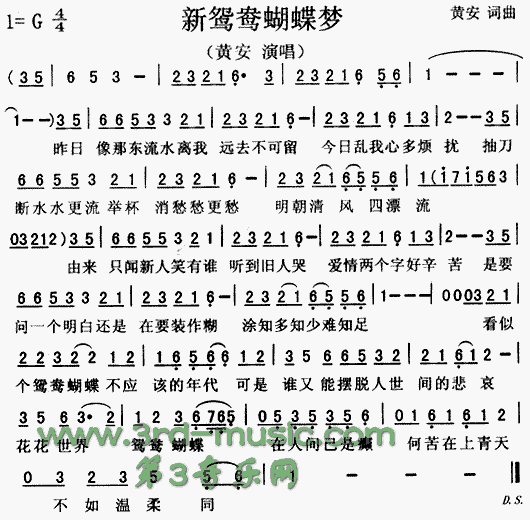 1=G 4/4 新鸳鸯蝴蝶梦 黄安 词曲
(黄安 演唱)
(3 5 | 6 6 5 3 - | 2 3 2 1 6· 3 | 2 3 2 1 6 5 6 | 1 - - -
1 - -) 3 5 | 6 6 5 3 3 2 1 | 2 3 2 1 2 3 5 | 6 6 5 3 3 2 1 | 2 - - 3 5
昨日 像那东流水离我 远去不可留 今日乱我心多烦 扰 抽刀
6 6 5 5 3 2 1 | 2 3 2 1 6 | 2 3 2 1 6 5 5 6 | 1 (1 7 1 5 6 3
断水水更流 举杯 消愁愁更愁 明朝清 风 四漂 流
0 3 2 1 2) 3 5 | 6 6 5 3 3 2 1 | 2 3 2 1 2 3 5 | 6 6 5 3 3 2 1 | 2 - - 3 5
由来 只闻新人笑有谁 听到旧人哭 爱情两个字好辛 苦 是要
6 6 5 3 3 2 1 | 2 3 2 1 6 | 2 3 2 1 6 5 5 6 | 1 - - - | 0 0 0 3 2 1
问一个明白还是 在要装作糊 涂知多知少难知足 看似
2 2 3 2 3 1 2 | 1 6 5 6 1 6 | 5 6 5 3 5 6 1 2 | 2 2 1 6 1 2
个鸳鸯蝴蝶 不应 该的年代 可是 谁又能摆脱人世 间的悲 哀
3 5 6 3· 2 | 1 2 1 2 3 6 7 6 5 | 0 5 3 5 3 5 6 | 0 1 6 1 6 1 2
花花 世界 鸳鸯 蝴蝶 在人间已是癫 何苦在上青天
www.3rd-music.com
第3音乐网
0 3 2 3 5 - 5 6
不 如 温 柔 同
D.S.